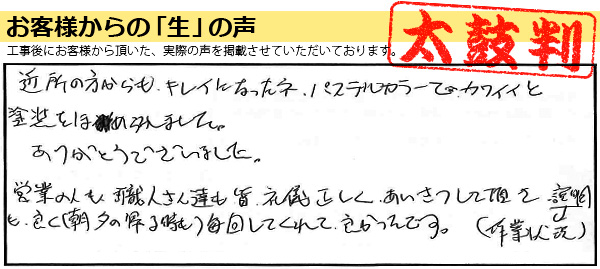 お客様からの「生」の声
太鼓判
工事後にお客様から頂いた、実際の声を掲載させていただいております。
近所の方からも、キレイになったネ、パステルカラーで、カワイイと
塗装をほめられました。
ありがとうございました。
営業の人も、職人さん達も皆、礼儀正しく、あいさつして頂き、説明
も、良く(朝夕の帰る時も)毎回してくれて、良かったです。(作業状況)